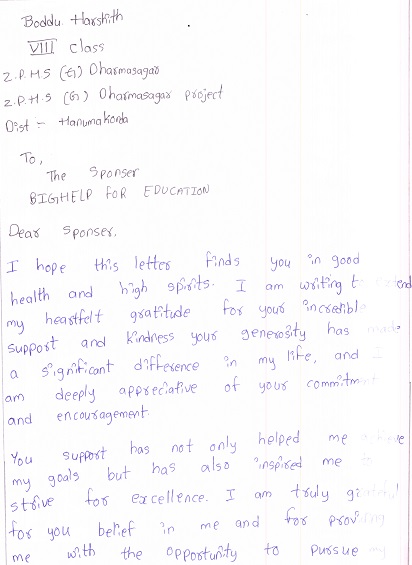 Boddu Harshith
VIII class
Z.P.H.S (G) Dharmasagar
Z.P.H.S (G) Dharmasagar project
Dist :- Hanumakonda
To,
The Sponser
BIGHELP FOR EDUCATION
Dear Sponser.
I hope this letter finds you in good
health and high spirits. I am writing
my heartfelt gratitude for your incredible
support and kindness your generosity has made
a significant difference in my life, and I
am deeply appreciative of your commitm
and encouragement.
You support has not only helped me
my goals but has also inspired me
strive for excellence. I am truly
for you belief in me and for proving
me with the opportunity to pursue my